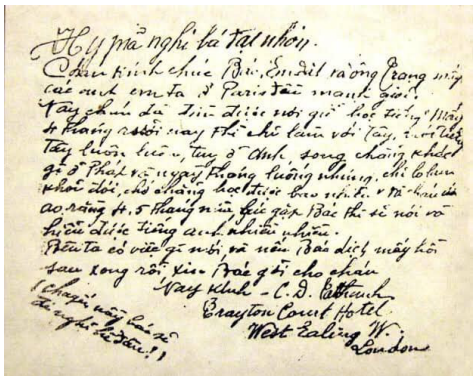 Hy mã nghi bá đại nhơn.
Cháu kính chúc Bác, Em dật và ông Trạng mấy
các anh em ta ở Paris đều mạnh giỏi.
Nay cháu đã tìm được nơi giờ học tiếng. Mấy
4 tháng rưỡi nay thì chỉ làm với tây, nói tiếng
tây luôn luôn, tuy ở Anh song chẳng khác
gì ở Pháp và ngày tháng luống những chỉ lo hun
khỏi đói, chớ chẳng học được bao nhiêu.
ao rằng 4, 5 tháng nữa, lúc gặp Bác thì sẽ nói và
hiểu được tiếng anh nhiều nhiều.
Bên ta có việc gì mới và nếu Bác dịch mấy hồi
sau xong rồi, xin Bác gởi cho cháu
Nay kính - C. D. Tatthanh
Brayton Court Hotel.
West Ealing W.
London
(chuyến này bác sẽ
đi nghỉ hè đâu!)